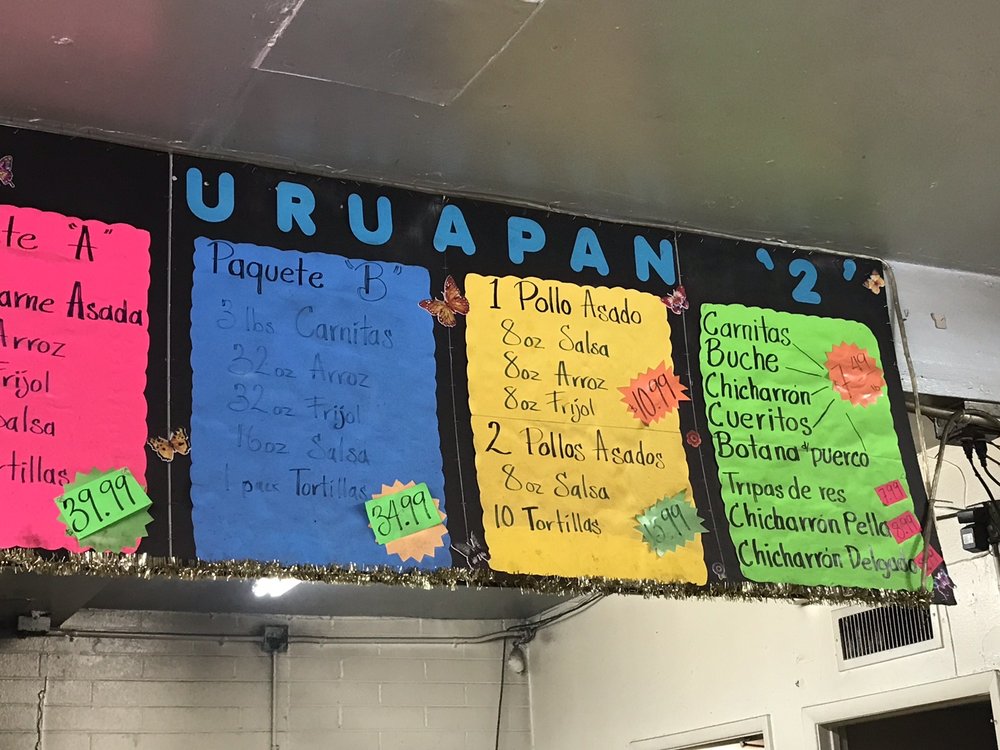 URUAPAN '2'
te "A"
arne Asada
Arroz
Frijol
Salsa
rtillas
39.99
Paquete "B"
3 lbs Carnitas
32oz Arroz
32oz Frijol
16oz Salsa
1 paix Tortillas
34.99
1 Pollo Asado
8oz Salsa
8oz Arroz
8oz Frijol
$10.99
2 Pollos Asados
8oz Salsa
10 Tortillas
15.99
Carnitas
Buche
Chicharrón
Cueritos
Botana d/ puerco
7.49 lb
Tripas de res 7.99
Chicharrón Pella 8.99
Chicharrón Delgado